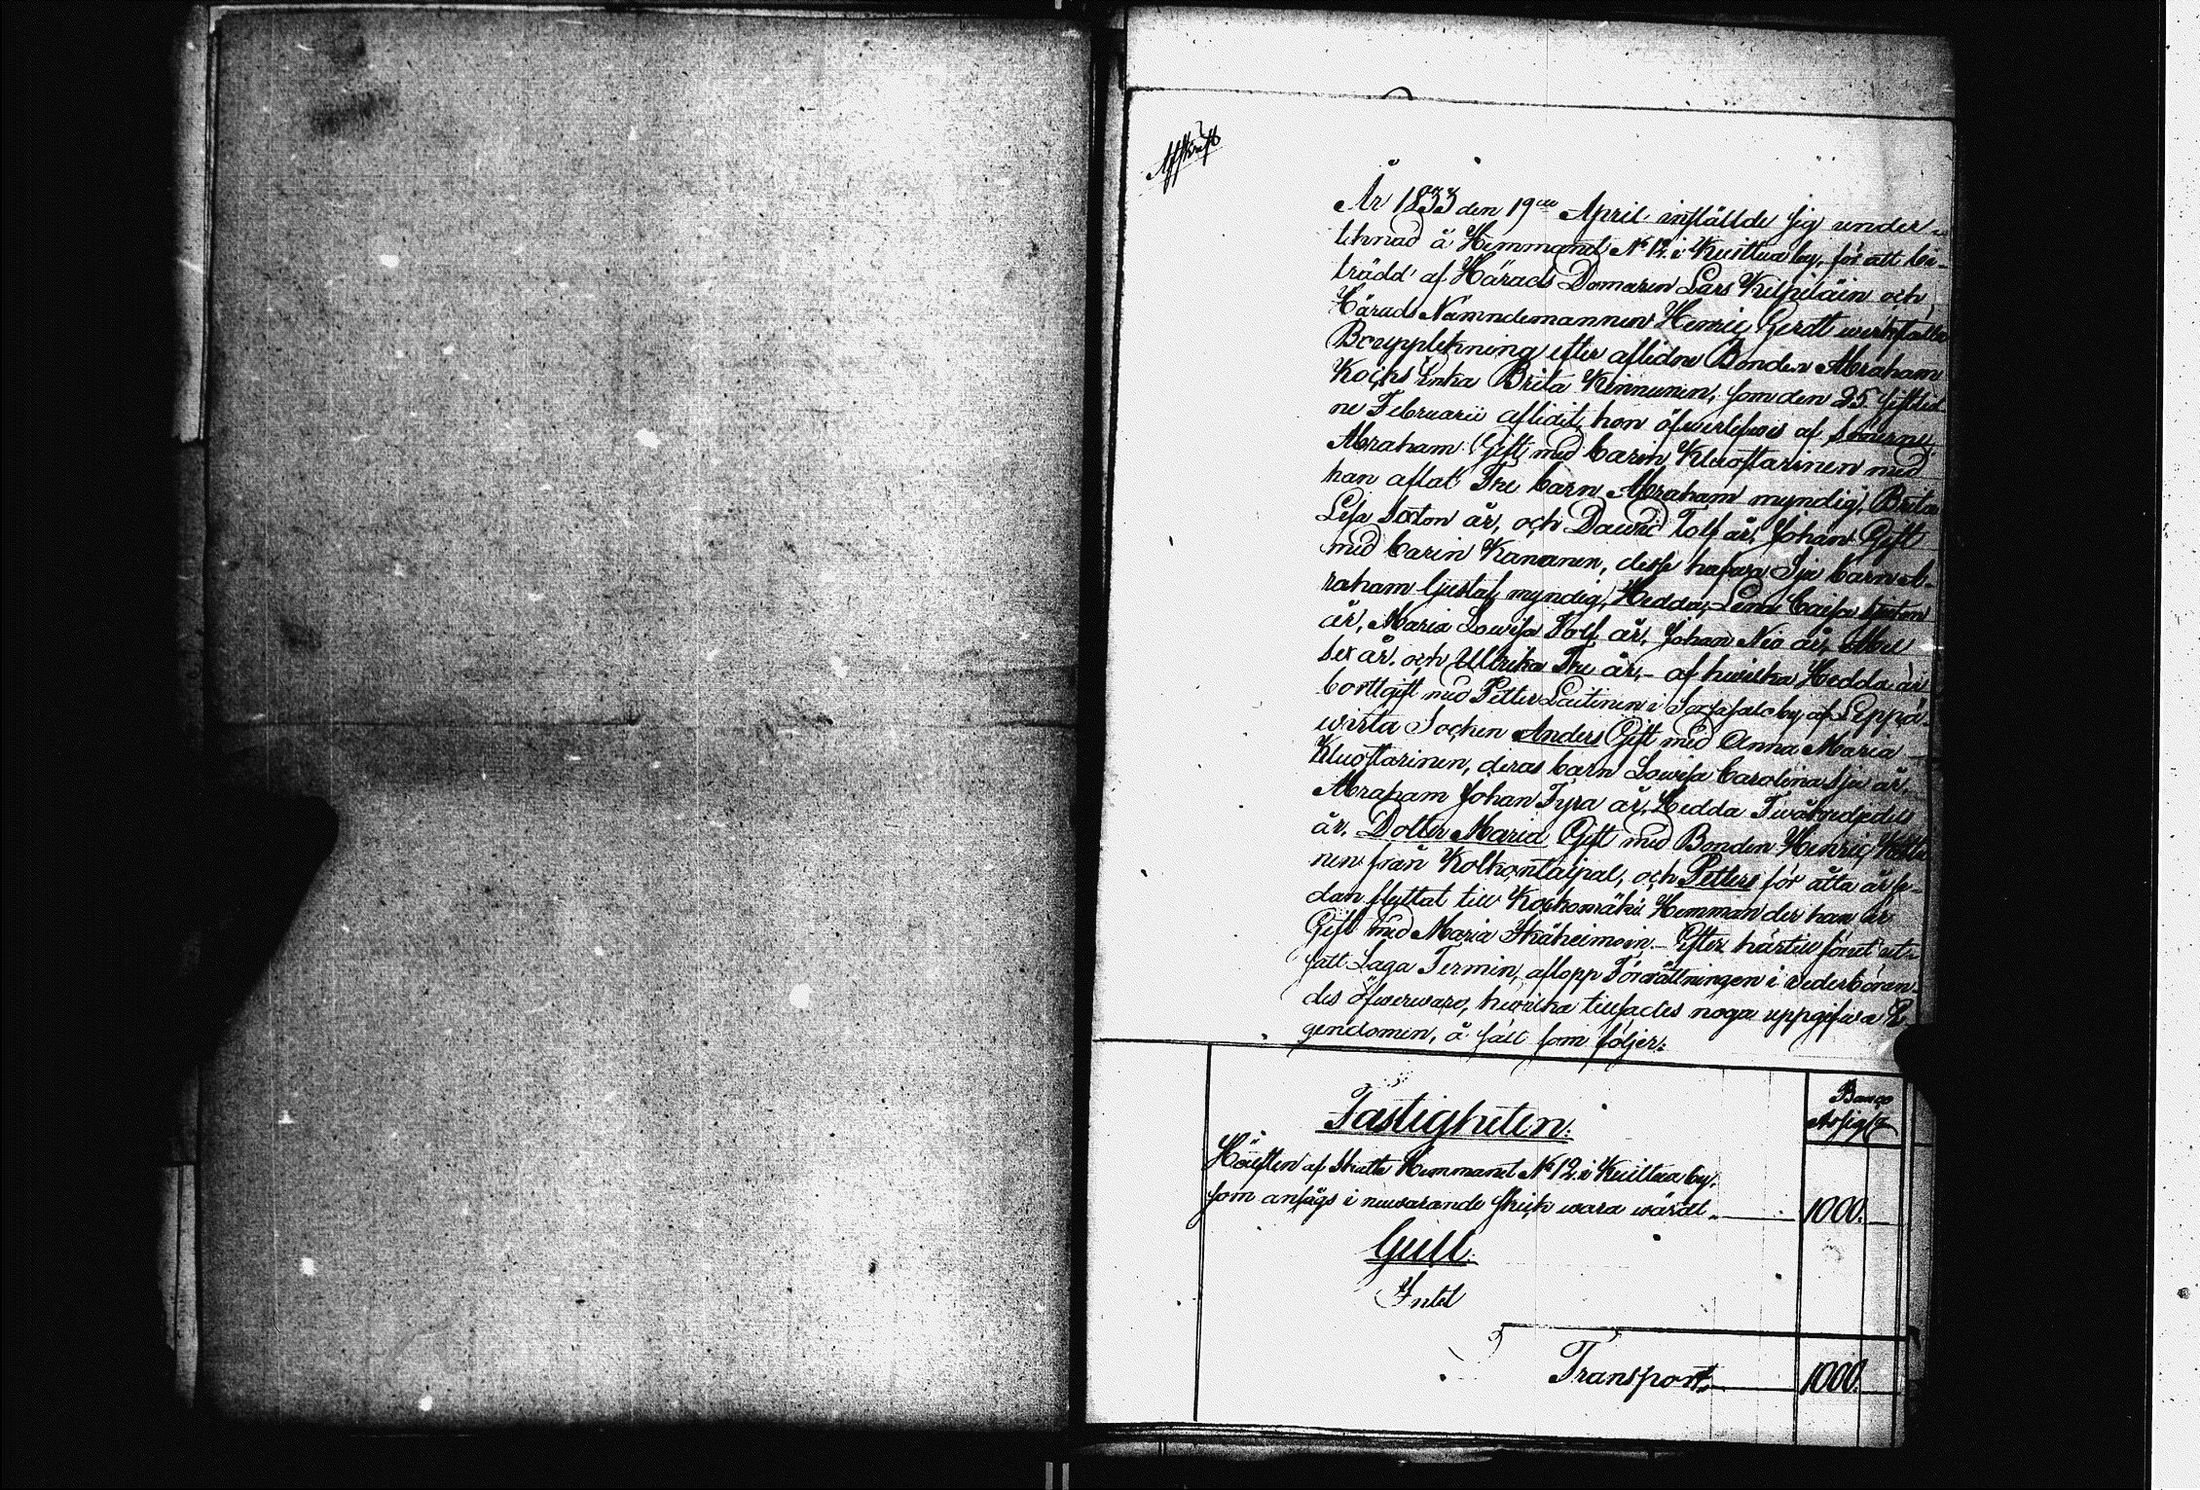 Afskrift
År 1833 den 19de April inställde sig under-
teknad å Hemmanet No 12. i Kuittua by, för att bi-
trädd af Härads Domaren Lars Kilpeläin och
Härads Nämndemannen Henric Gerdt werkställa
Boupptekning efter aflidne Bonden Abraham
Kocks Enka Brita Kinnunen, som den 25 sistled-
ne Februarii aflidit, hon öfwerlefwes af Sönerne
Abraham Gift med Carin Kluostarinen med
han aflat Tre barn Abraham myndig, Brita
Lisa Sexton år, och Dawid Tolf år, Johan Gift
med Carin Kananen, desse hafwa Sju barn A-
braham Gustaf myndig, Hedda, Lena Caisa
år, Maria Lowisa Tolf år, Johan Nio år,
sex år, och Ullrika Tre år, - af hwilka Hedda är
bortgift med Petter Laitinen i by af Leppä-
wirta Socken Anders Gift med Anna Maria
Kluostarinen, deras barn Lowisa Carolina sju år,
Abraham Johan Fyra år, Hedda Twåtredjedels
år. Dotter Maria Gift med Bonden Henric
nen från Kolkontaipal, och Petter för åtta år se-
dan flyttat till Kockomäki Hemman der han är
Gift med Maria Ihäheimoin. - Efter härtill förut ut-
satt Laga Termin, aflopp Förrättningen i wederböran-
des öfwerwaro, hwilka tillsades noga uppgifwa E-
gendomen, å sätt som följer:
Banco
Assigt:
Fastigheten:
Hälften af Skatte Hemmanet No 12. i Kuittua by.
som ansågs i nuwarande skick wara wärdt 1000.
Gull:
Intet
Transport 1000.